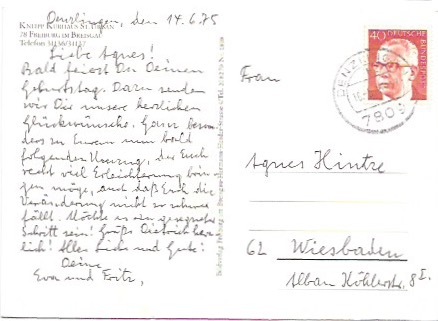 Denzlingen, den 14.6.75
KNEIPP KURHAUS ST. URBAN
78 FREIBURG IM BREISGAU
Telefon
Liebe Agnes!
Bald feierst Du Deinen
Geburtstag. Dazu senden
wir Dir unsere herzlichen
Glückwünsche. Ganz beson
ders zu Eurem nun bald
folgenden Umzug, der Euch
recht viel Erleichterung brin
gen möge, auch daß Euch die
Veränderung nicht zu schwer
fällt. Möchte es ein gesegneter
Schritt sein! Grüße Dietrich herz
lich! Alles Liebe und Gute!
Deine
Eva und Fritz,
40
DEUTSCHE BUNDESPOST
DENZLINGEN
7809
Frau
Agnes Hintze
62 Wiesbaden
Alban Köhlerstr. 8 I.